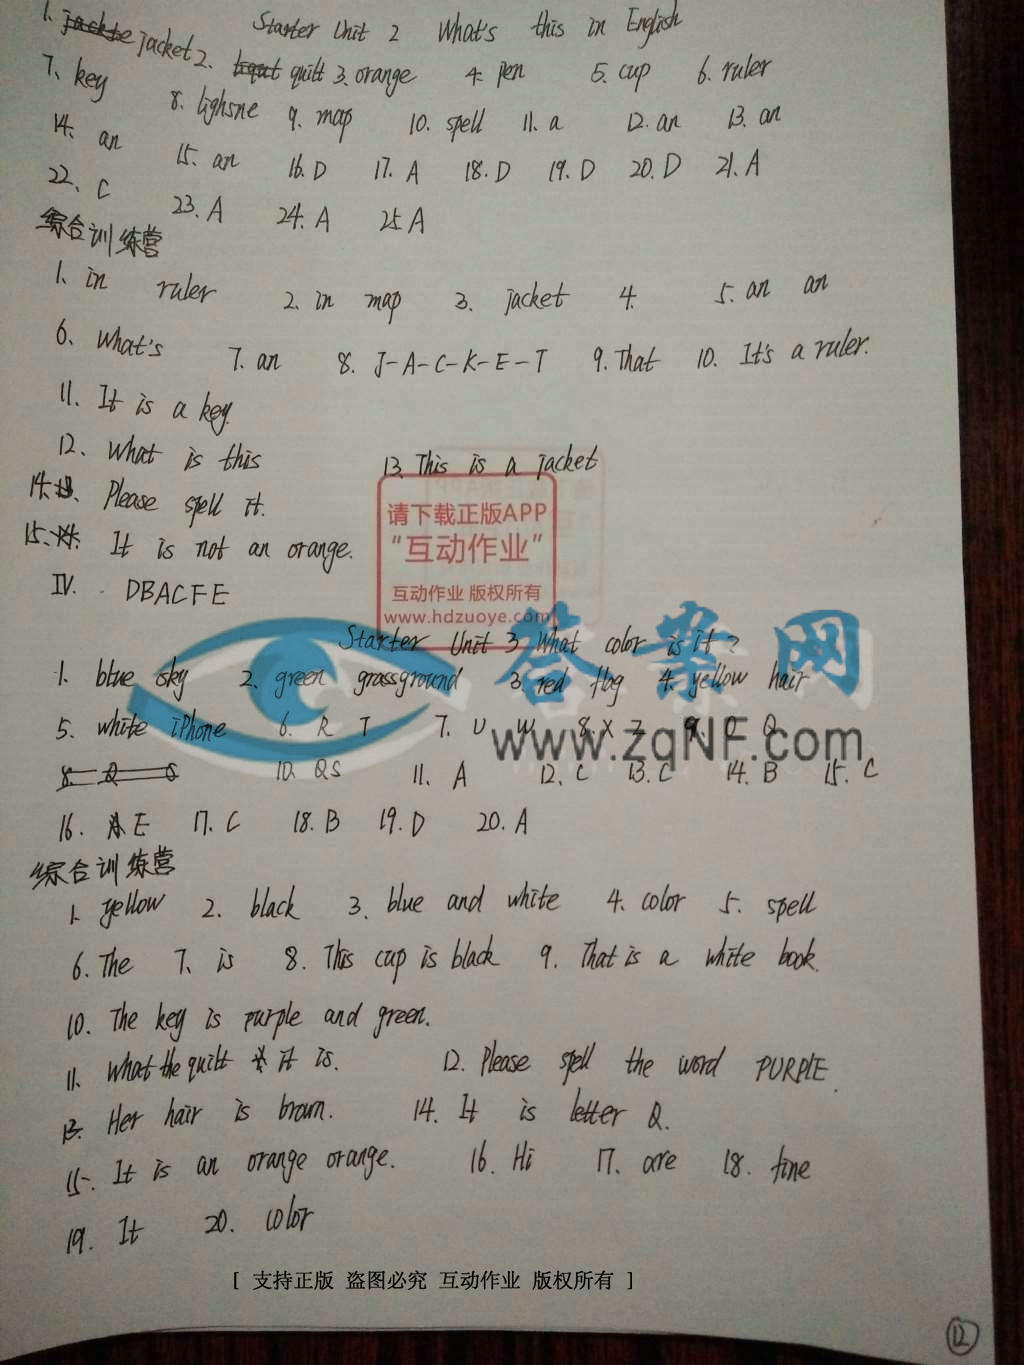 Starter Unit 2 What's this in English
1. jacket 2. quilt 3. orange 4. pen 5. cup 6. ruler
7. key 8. 9. map 10. spell 11. a 12. an 13. an
14. an 15. an 16. D 17. A 18. D 19. D 20. D 21. A
22. C 23. A 24. A 25 A
综合训练营
1. in ruler 2. in map 3. jacket 4. 5. an an
6. What's 7. an 8. J-A-C-K-E-T 9. That 10. It's a ruler.
11. It is a key.
12. What is this 13. This is a jacket
14. Please spell it.
15. It is not an orange.
IV. DBACFE
请下载正版APP
“互动作业”
互动作业 版权所有
www.hdzuoye.com
Starter Unit 3 What color is it?
1. blue sky 2. green grassground 3. red flag 4. yellow hair
5. white iPhone 6. R T 7. U W 8. X Z 9. O Q
10. QS 11. A 12. C 13. C 14. B 15. C
答业网
www.zqNF.com
16. E 17. C 18. B 19. D 20. A
综合训练营
1. yellow 2. black 3. blue and white 4. color 5. spell
6. The 7. is 8. This cup is black 9. That is a white book.
10. The key is purple and green.
11. What the quilt it is. 12. Please spell the word PURPLE.
13. Her hair is brown. 14. It is letter Q.
15. It is an orange orange. 16. Hi 17. are 18. fine
19. It 20. color
[ 支持正版 盗图必究 互动作业 版权所有 ]
12